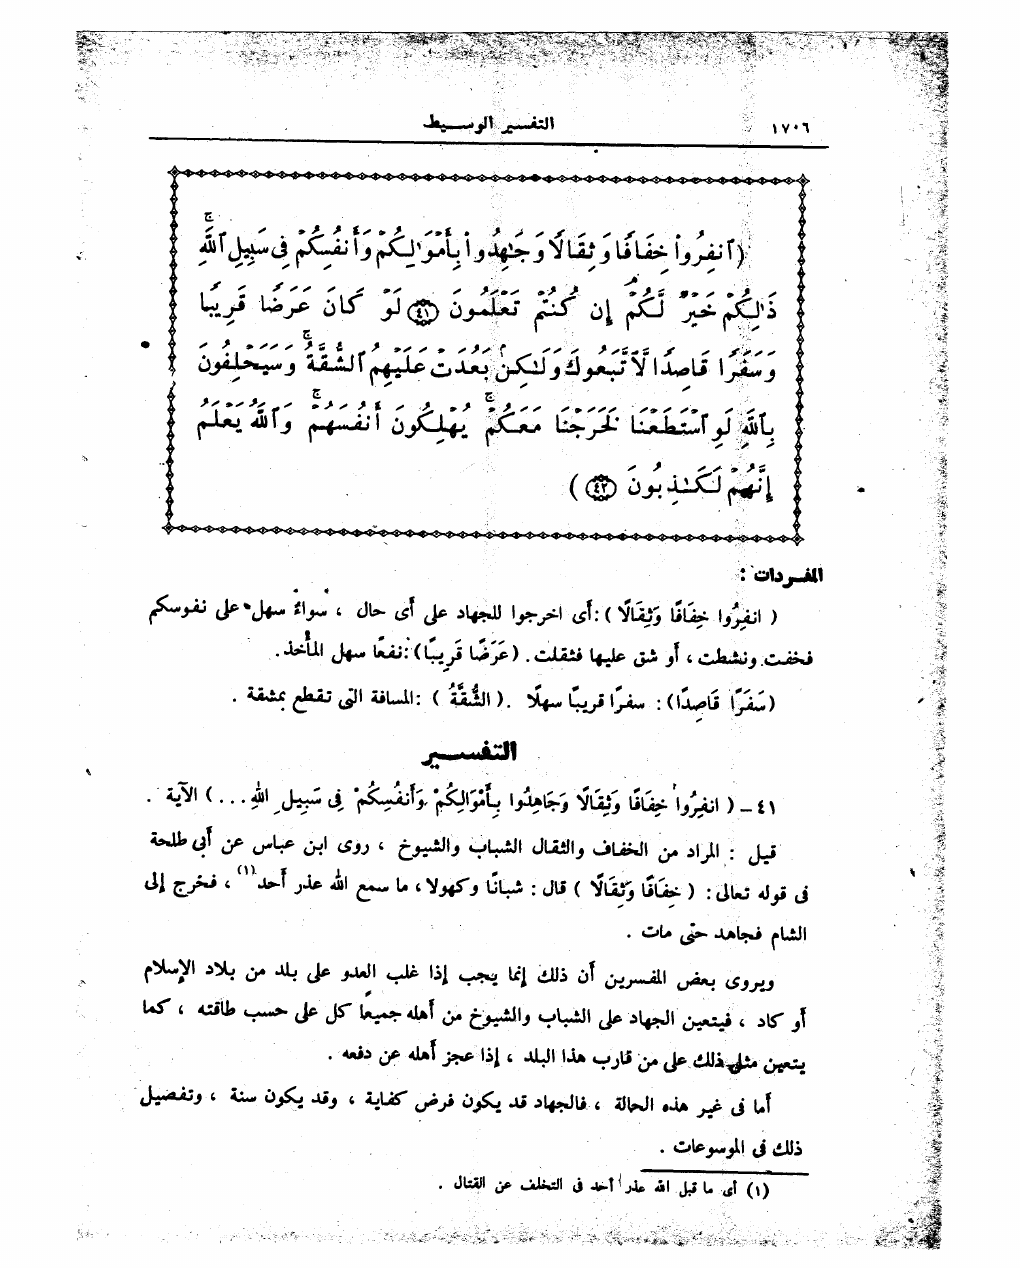 ١٧٠٦
التفسير الوسيط
(ٱنفِرُواْ خِفَافًا وَثِقَالًا وَجَٰهِدُواْ بِأَمْوَٰلِكُمْ وَأَنفُسِكُمْ فِى سَبِيلِ ٱللَّهِ ۚ
ذَٰلِكُمْ خَيْرٌ لَّكُمْ إِن كُنتُمْ تَعْلَمُونَ ﴿٤١﴾ لَوْ كَانَ عَرَضًا قَرِيبًا
وَسَفَرًا قَاصِدًا لَّٱتَّبَعُوكَ وَلَٰكِنۢ بَعُدَتْ عَلَيْهِمُ ٱلشُّقَّةُ ۚ وَسَيَحْلِفُونَ
بِٱللَّهِ لَوِ ٱسْتَطَعْنَا لَخَرَجْنَا مَعَكُمْ ۚ يُهْلِكُونَ أَنفُسَهُمْ ۚ وَٱللَّهُ يَعْلَمُ
إِنَّهُمْ لَكَٰذِبُونَ ﴿٤٢﴾ )
المفردات :
( انفِرُوا خِفَافًا وَثِقَالًا ) :أى اخرجوا للجهاد على أى حال ، سواءٌ سهل على نفوسكم
فخفت ونشطت ، أو شق عليها فثقلت . (عَرَضًا قَرِيبًا) :نفعًا سهل المأْخذ .
(سَفَرًا قَاصِدًا) : سفرًا قريبًا سهلًا . ( الشُّقَّةُ ) :المسافة التى تقطع بمشقة .
التفسير
٤١ – ( انفِرُوا خِفَافًا وَثِقَالًا وَجَاهِدُوا بِأَمْوَالِكُمْ وَأَنفُسِكُمْ فِى سَبِيلِ اللهِ ... ) الآية .
قيل : المراد من الخفاف والثقال الشباب والشيوخ ، روى ابن عباس عن أبى طلحة
فى قوله تعالى : ( خِفَافًا وَثِقَالًا ) قال : شبانًا وكهولا ، ما سمع الله عذر أحد(١) ، فخرج إلى
الشام فجاهد حتى مات .
ويروى بعض المفسرين أن ذلك إنما يجب إذا غلب العدو على بلد من بلاد الإسلام
أو كاد ، فيتعين الجهاد على الشباب والشيوخ من أهله جميعًا كل على حسب طاقته ، كما
يتعين مثل ذلك على من قارب هذا البلد ، إذا عجز أهله عن دفعه .
أما فى غير هذه الحالة ، فالجهاد قد يكون فرض كفاية ، وقد يكون سنة ، وتفصيل
ذلك فى الموسوعات .
(١) أى ما قبل الله عذر أحد فى التخلف عن القتال .